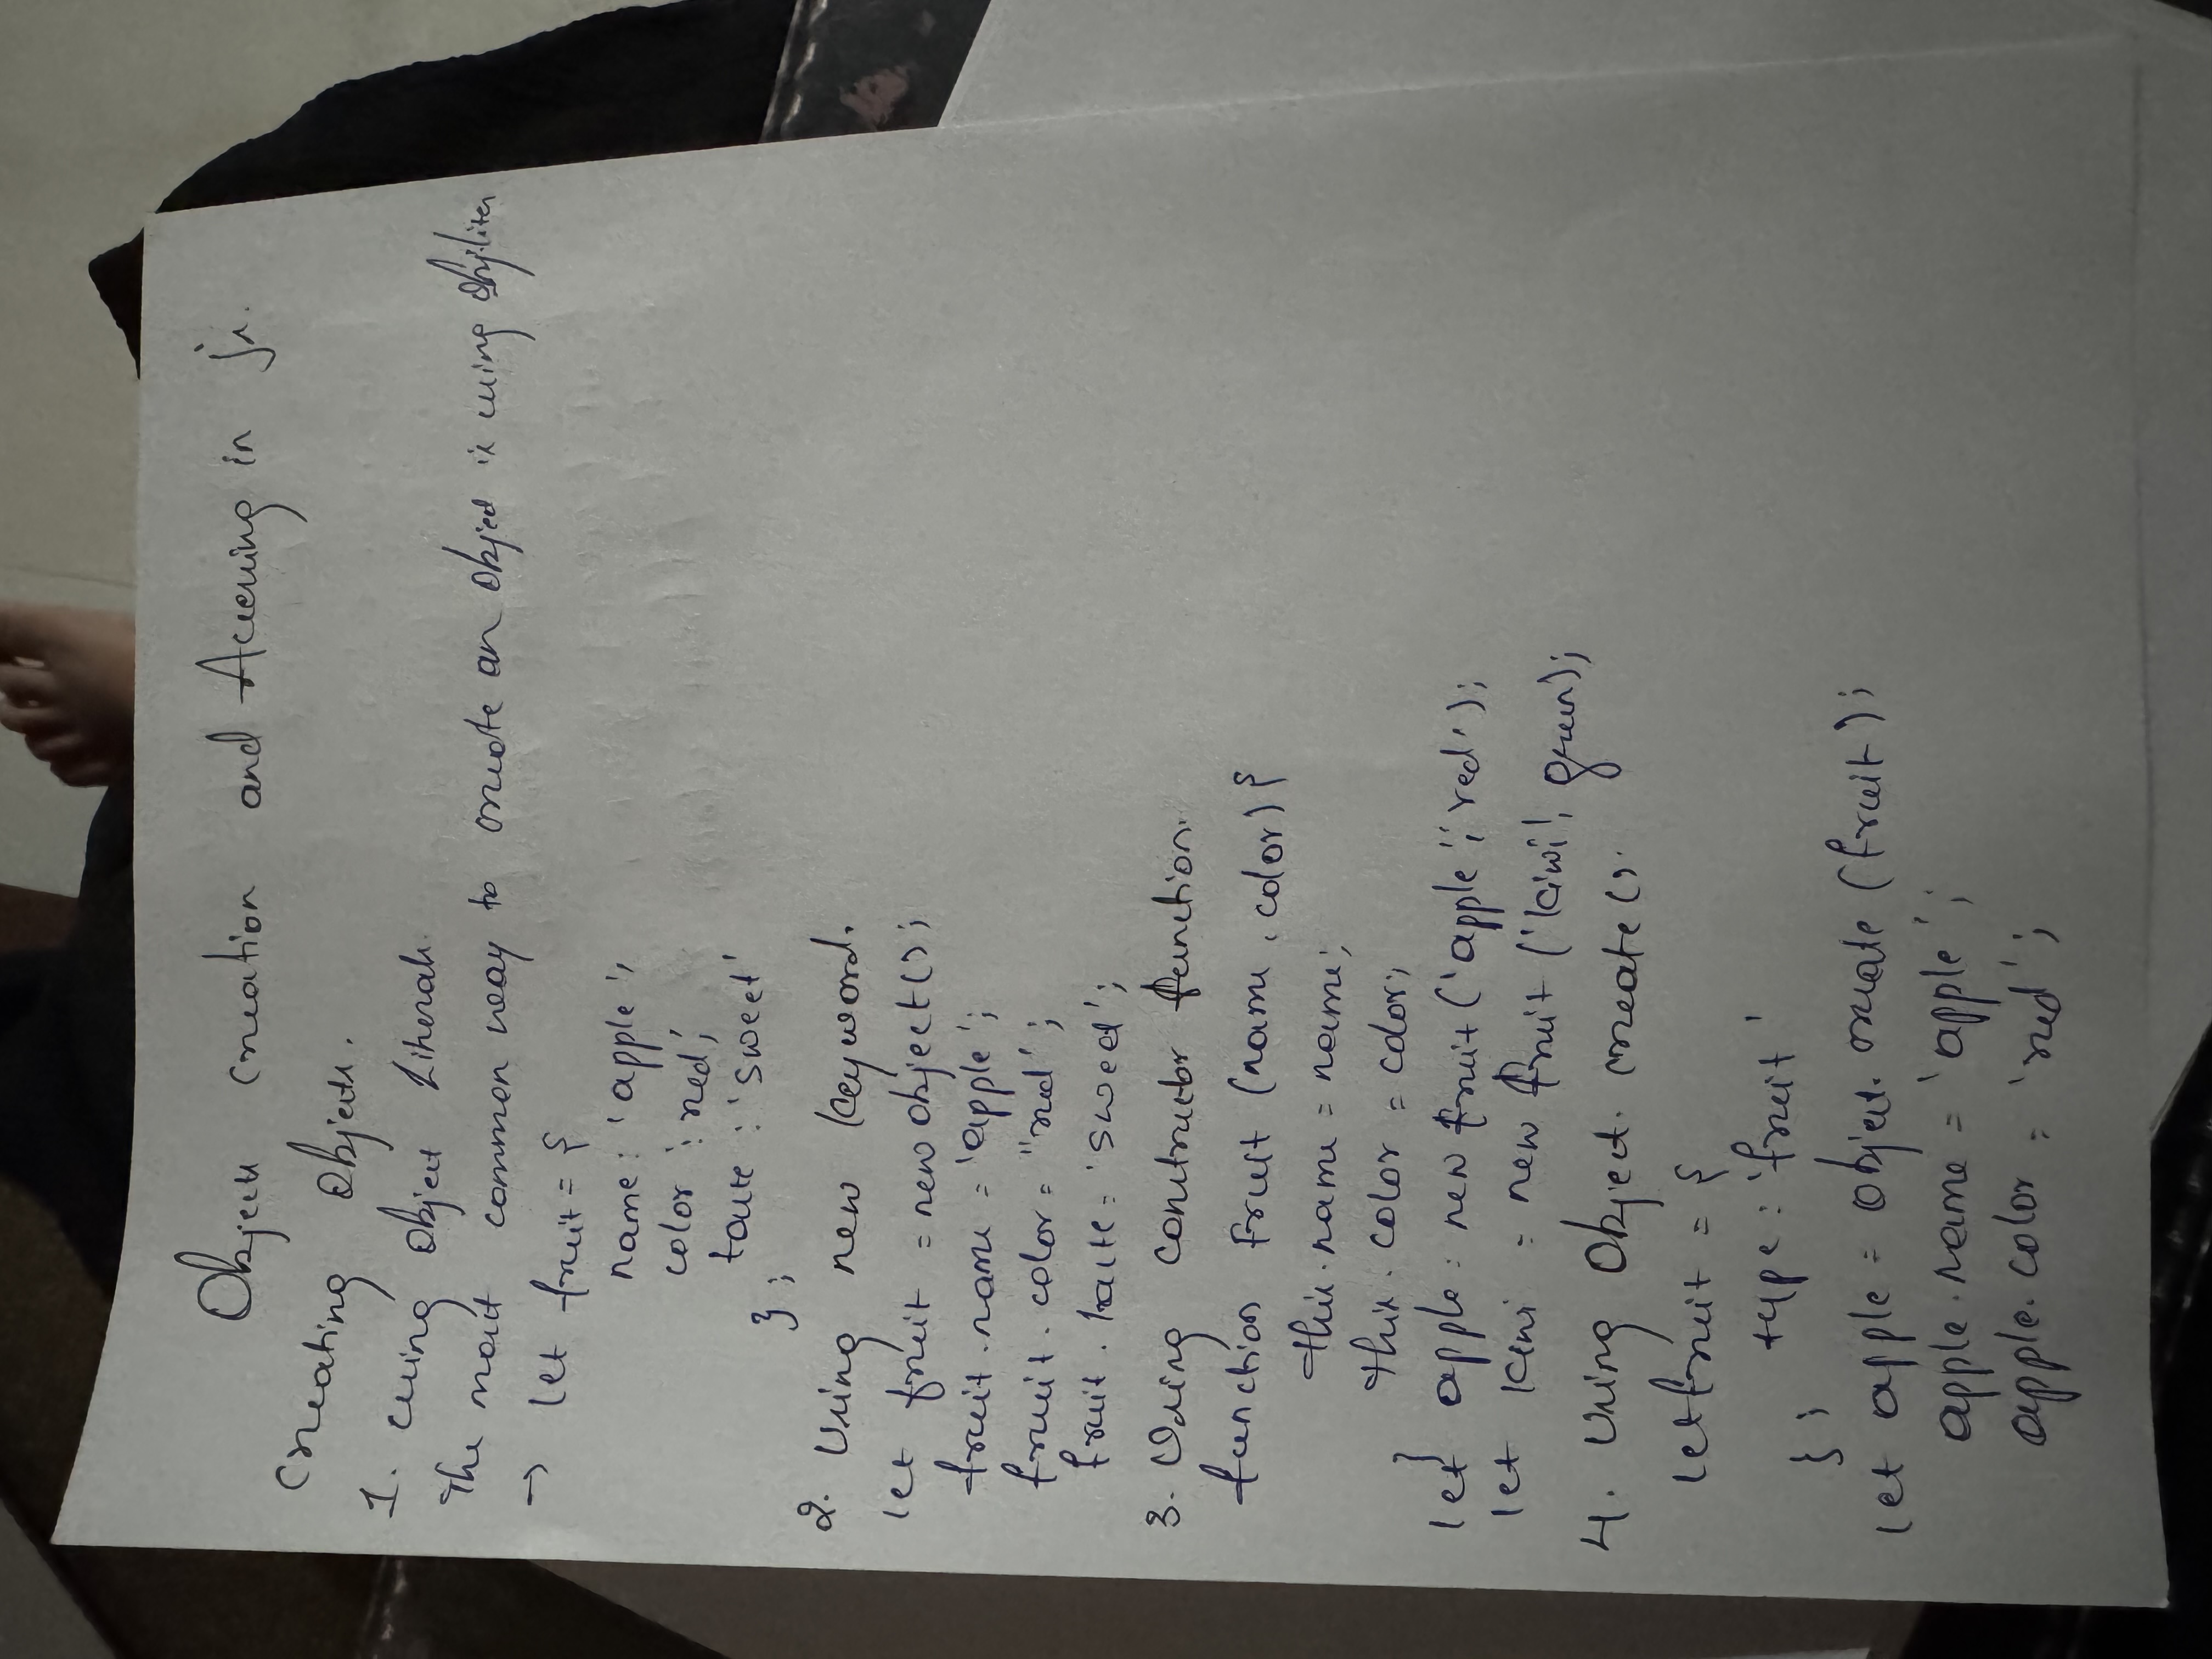 Objects creation and Accessing in js.
Creating Objects.
1. using Object Literals.
The most common way to create an object is using Obj.liter
→ let fruit = {
name: 'apple',
color : red,'
taste : 'sweet'
};
2. Using new keyword.
let fruit = new object();
fruit.name = 'apple';
fruit.color = "red';
fruit.taste = 'sweet';
3. Using constructor function.
function Fruit (name, color) {
this.name = name;
this.color = color;
}
let apple = new fruit ('apple','red');
let kiwi = new fruit ('kiwi', green);
4. Using Object.create().
let fruit = {
type : 'fruit'
};
let apple = object.create (fruit);
apple.name = 'apple';
apple.color = 'red';